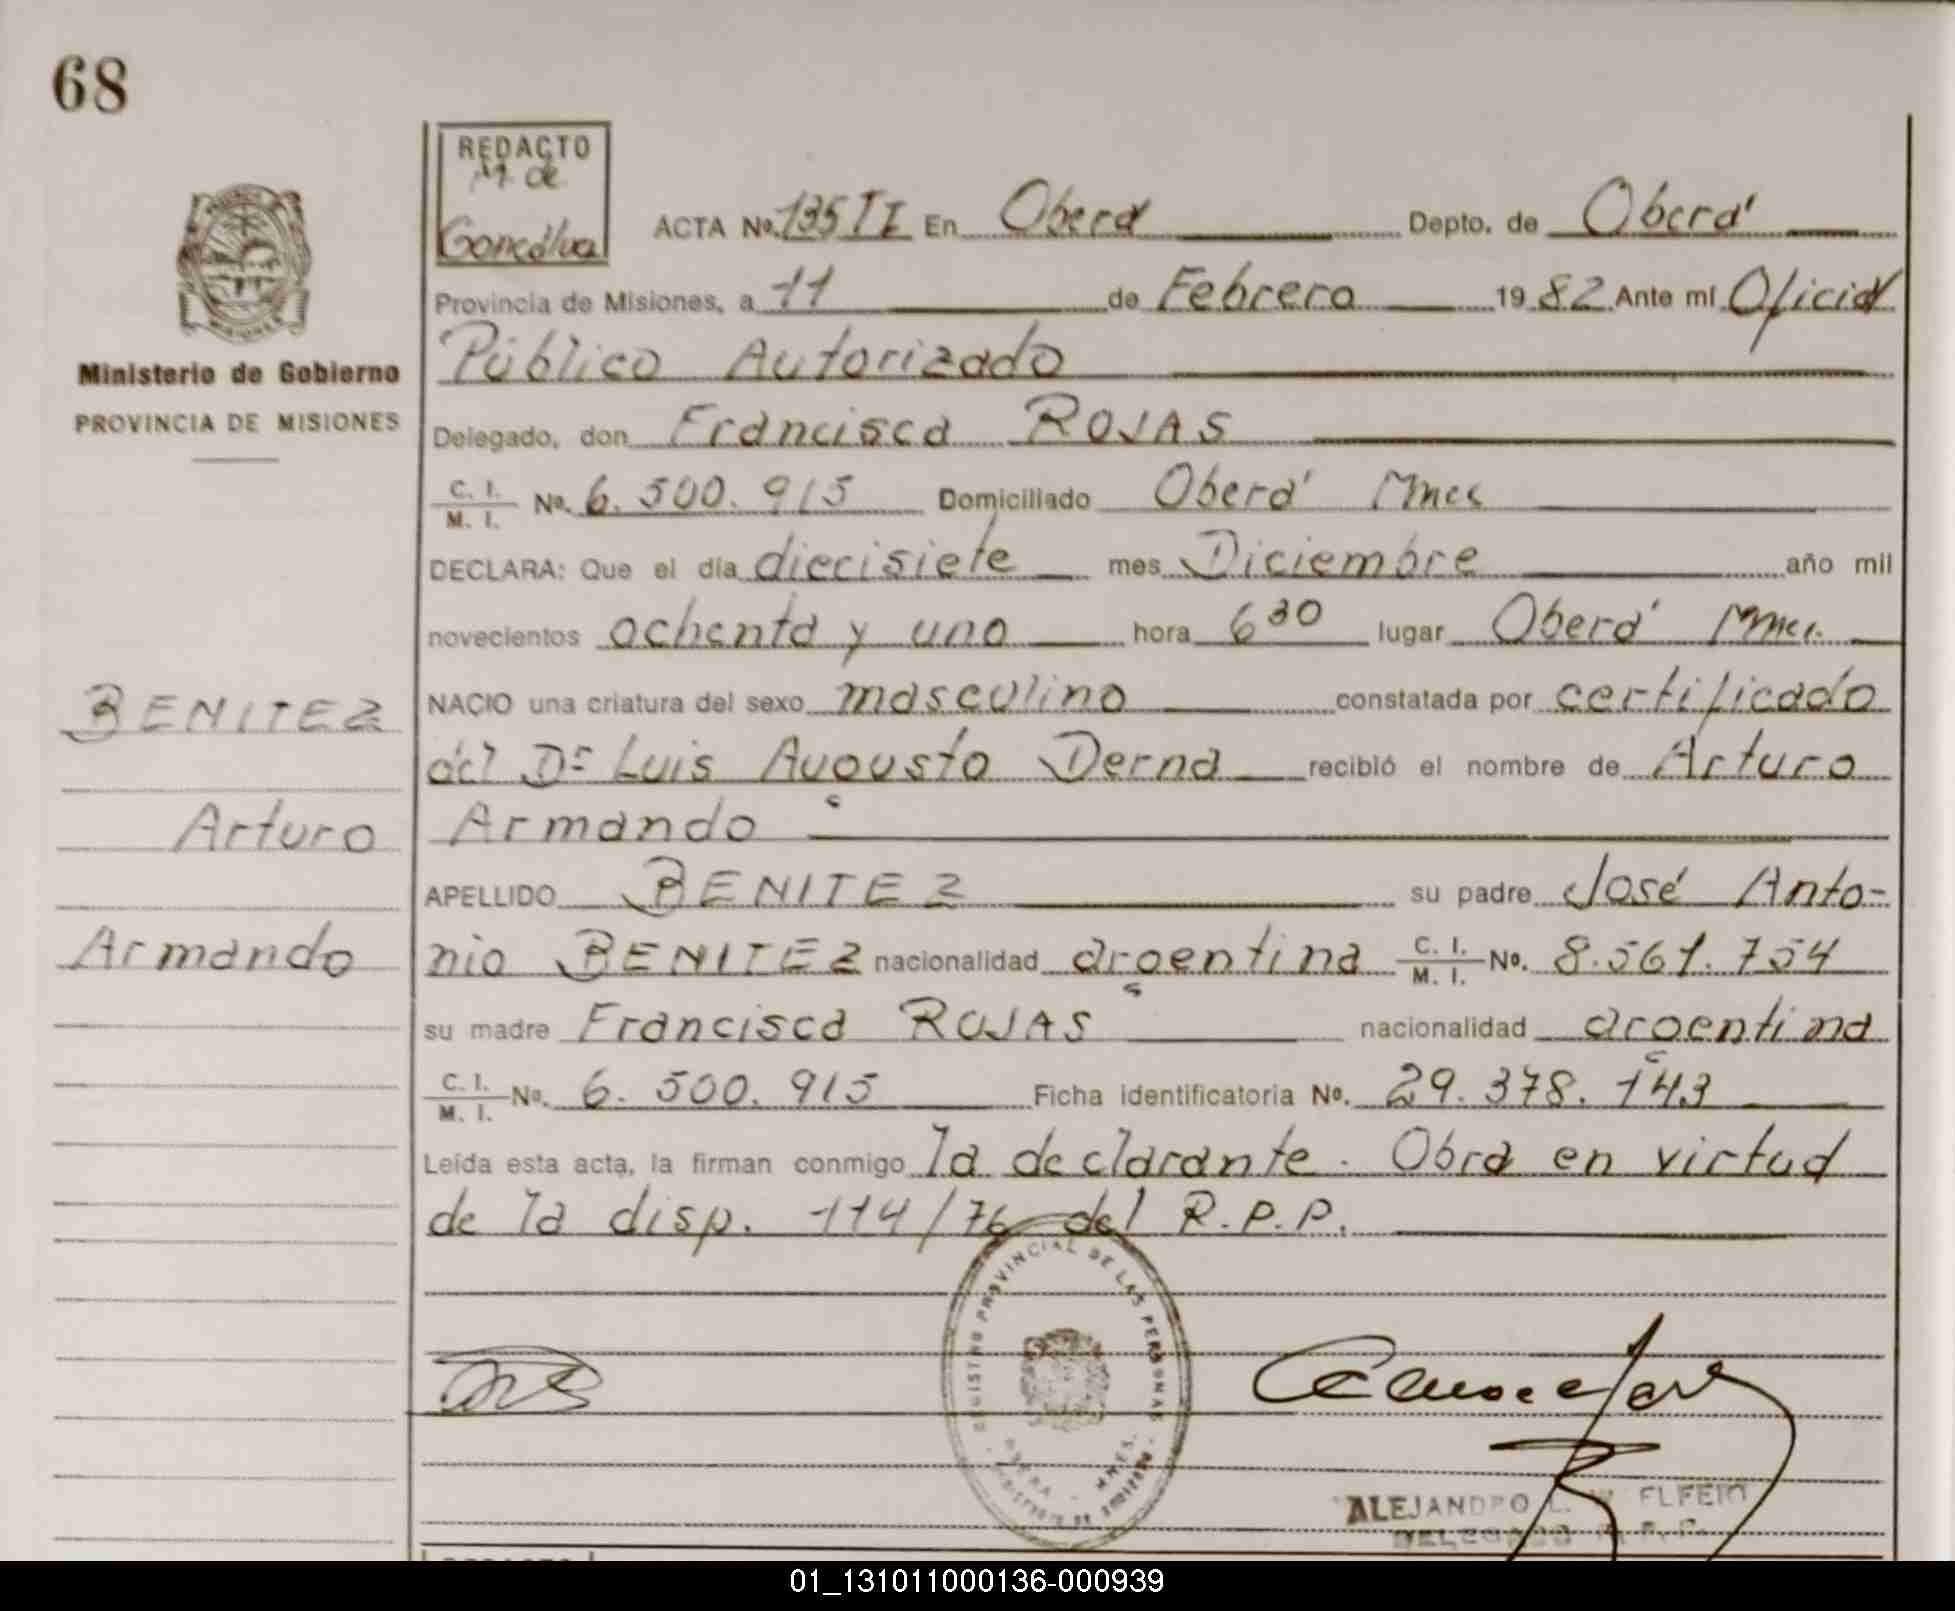 68
REDACTO
M. de
Goncálvez
ACTA No. 135 II En Oberá Depto. de Oberá
Provincia de Misiones, a 11 de Febrero 19 82 Ante mí Oficial
Público Autorizado
Delegado, don Francisca ROJAS
C. I.
M. I. No. 6.500.915 Domiciliado Oberá Mnes
DECLARA: Que el día diecisiete mes Diciembre año mil
novecientos ochenta y uno hora 6 30 lugar Oberá Mnes.
NACIO una criatura del sexo masculino constatada por certificado
del Dr Luis Augusto Derna recibió el nombre de Arturo
Armando
APELLIDO BENITEZ su padre José Anto-
nio BENITEZ nacionalidad argentina C. I.
M. I. No. 8.561.754
su madre Francisca ROJAS nacionalidad argentina
C. I.
M. I. No. 6.500.915 Ficha identificatoria No. 29.378.143
Leída esta acta, la firman conmigo la declarante. Obra en virtud
de la disp. 114/76 del R.P.P.
Ministerio de Gobierno
PROVINCIA DE MISIONES
BENITEZ
Arturo
Armando
REGISTRO PROVINCIAL DE LAS PERSONAS
MINISTERIO DE GOBIERNO
OBERA - MNES.
ALEJANDRO L.
DELEGADO R. P. P.
01_131011000136-000939